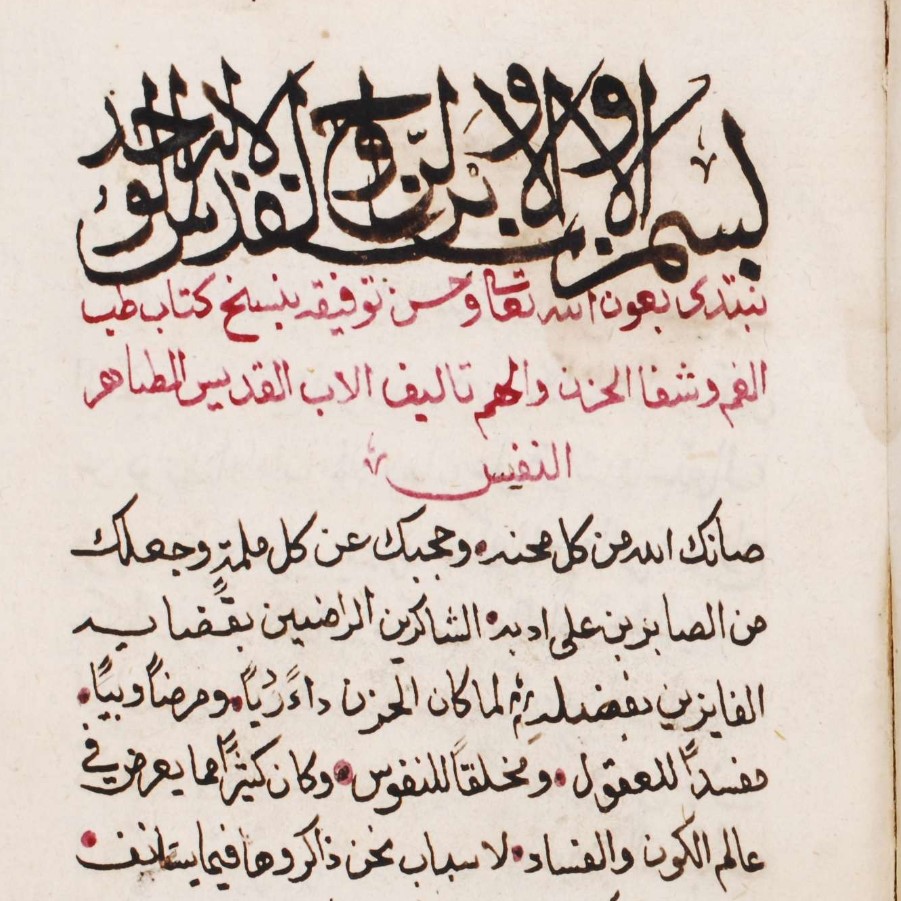 بسم الاب والابن والروح القدس الاله الواحد
نبتدى بعون الله تعالى وحسن توفيقه بنسخ كتاب طب
الغم وشفا الحزن والهم تاليف الاب القديس المطاهر
النفيس
صانك الله من كل محنه وحجبك عن كل ملمة وجعلك
من الصابرين على ادبه الشاكرين الراضيين بقضايه
الفايزين بفضله ثم لما كان الحزن داءً رديًا ومرضاً وبيًا
مفسداً للعقول ومخلقاً للنفوس وكان كثيراً مما يعرض في
عالم الكون والفساد لاسباب نحن ذاكروها فيما يستانف